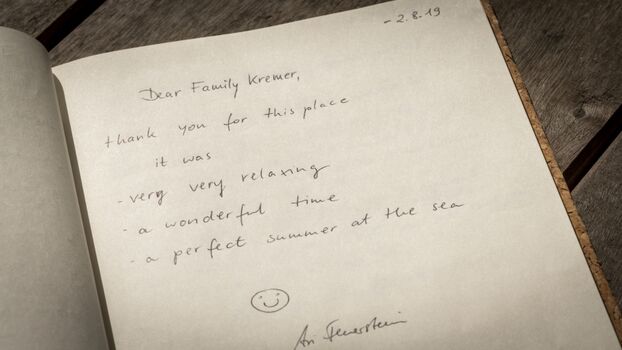 - 2.8.19
Dear Family Kremer,
thank you for this place
it was
- very very relaxing
- a wonderful time
- a perfect summer at the sea
Ari Feuerstein